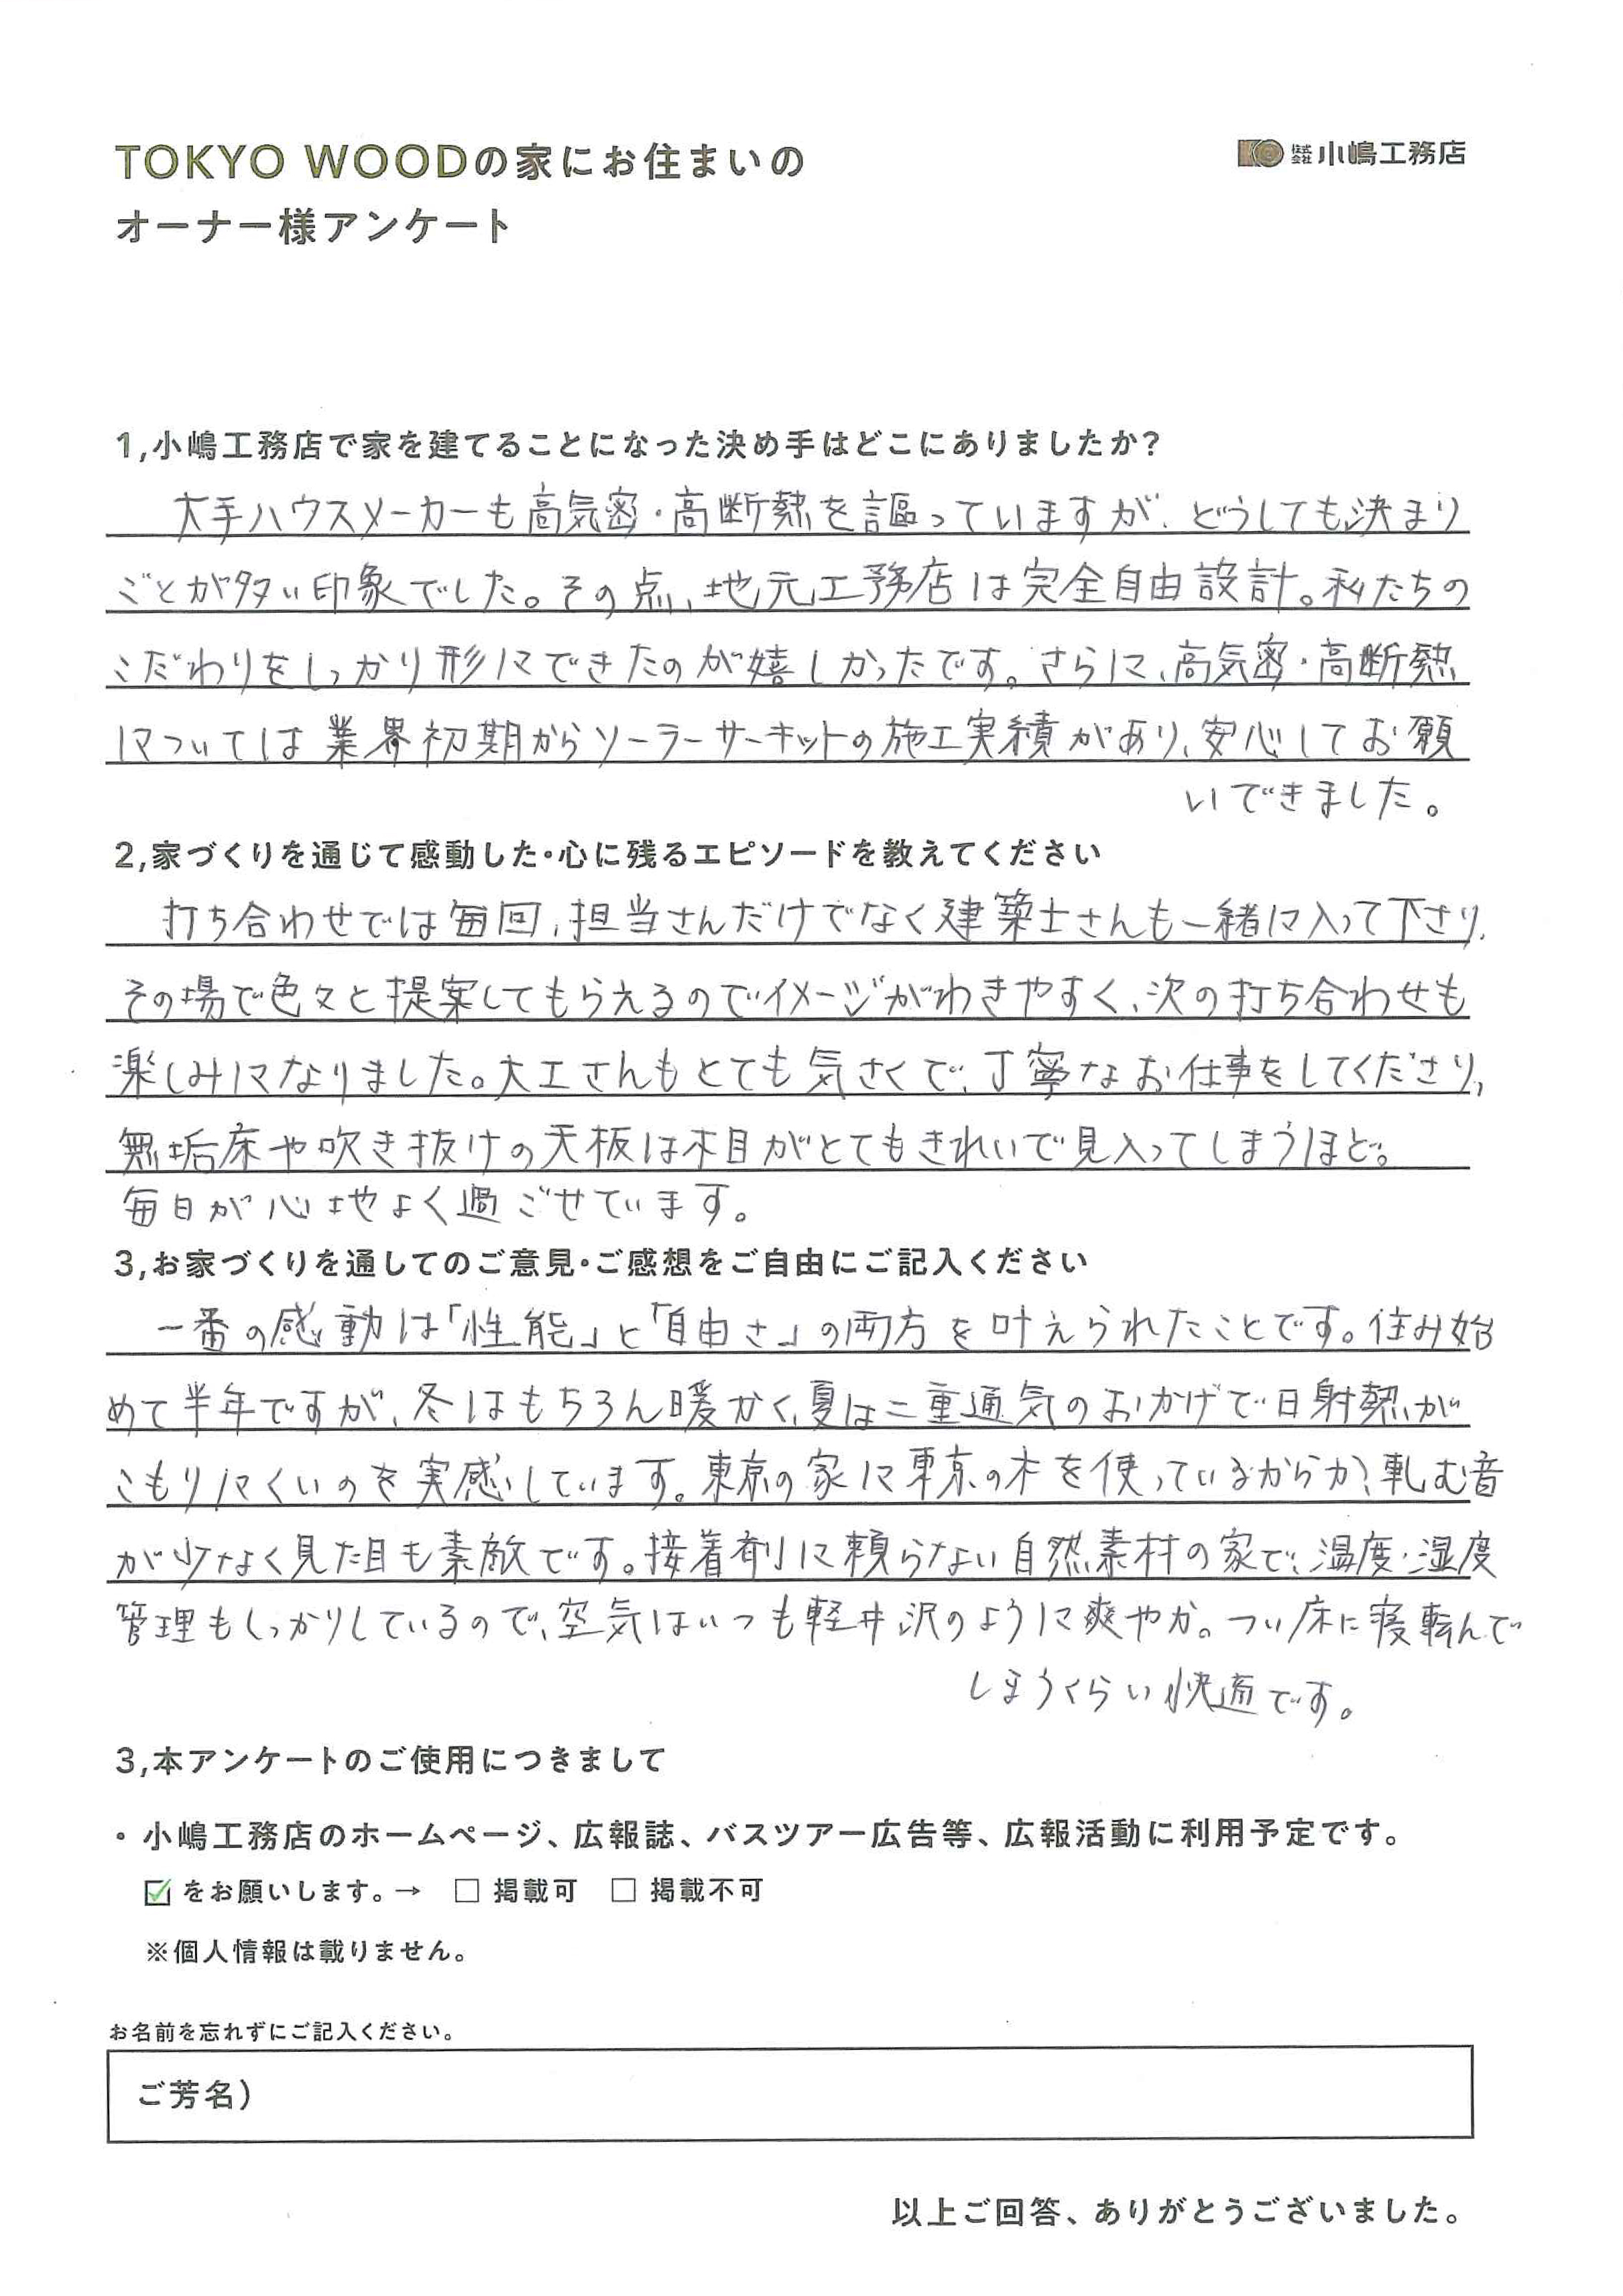 TOKYO WOODの家にお住まいの
オーナー様アンケート
株式会社 小嶋工務店
1,小嶋工務店で家を建てることになった決め手はどこにありましたか?
大手ハウスメーカーも高気密・高断熱を謳っていますが、どうしても決まり
ごとが多い印象でした。その点、地元工務店は完全自由設計。私たちの
こだわりをしっかり形にできたのが嬉しかったです。さらに、高気密・高断熱
については業界初期からソーラーサーキットの施工実績があり、安心してお願
いできました。
2,家づくりを通じて感動した・心に残るエピソードを教えてください
打ち合わせでは毎回、担当さんだけでなく建築士さんも一緒に入って下さり、
その場で色々と提案してもらえるのでイメージがわきやすく、次の打ち合わせも
楽しみになりました。大工さんもとても気さくで、丁寧なお仕事をしてくださり、
無垢床や吹き抜けの天板は木目がとてもきれいで見入ってしまうほど。
毎日が心地よく過ごせています。
3,お家づくりを通してのご意見・ご感想をご自由にご記入ください
一番の感動は「性能」と「自由さ」の両方を叶えられたことです。住み始
めて半年ですが、冬はもちろん暖かく、夏は二重通気のおかげで日射熱が
こもりにくいのを実感しています。東京の家に東京の木を使っているからか、軋む音
が少なく見た目も素敵です。接着剤に頼らない自然素材の家で、温度・湿度
管理もしっかりしているので、空気はいつも軽井沢のように爽やか。つい床に寝転んで
しまうくらい快適です。
3,本アンケートのご使用につきまして
・小嶋工務店のホームページ、広報誌、バスツアー広告等、広報活動に利用予定です。
☑をお願いします。→ □ 掲載可 □ 掲載不可
※個人情報は載りません。
お名前を忘れずにご記入ください。
ご芳名)
以上ご回答、ありがとうございました。